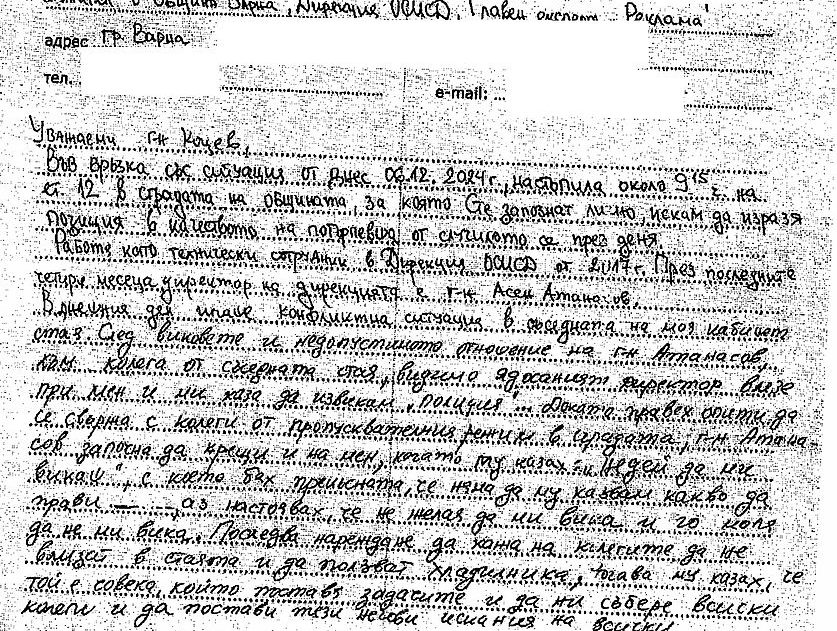 Община Варна, Дирекция ОСИСД, Главен експерт "Реклама"
адрес гр. Варна
тел.
e-mail: ...
Уважаеми г-н Коцев,
Във връзка със ситуация от днес 06.12.2024 г., настъпила около 9 15 ч. на
ет. 12 в сградата на общината, за която сте запознат лично, искам да изразя
позиция в качеството на потърпевша от случилото се през деня.
Работя като технически сътрудник в Дирекция ОСИСД от 2017 г. През последните
четири месеца директор на дирекцията е г-н Асен Атанасов.
В днешния ден имаше конфликтна ситуация в съседната на моя кабинет
стая. След виковете и недопустимото отношение на г-н Атанасов,
към колега от съседната стая, видимо ядосаният директор влезе
при мен и ми каза да извикам "полиция". Докато правех опити да
се свържа с колеги от пропускателния режим в сградата, г-н Атана-
сов започна да крещи и на мен, когато му казах "Недей да ми
викаш", с което бях прекъсната, че няма да му казвам какво да
прави, аз настоявах, че не желая да ми вика и го моля
да не ми вика. Последва нареждане да кажа на колегите да не
влизат в стаята и да ползват хладилника, тогава му казах, че
той е човека, който поставя задачите и да ни събере всички
колеги и да постави тези негови искания на всички